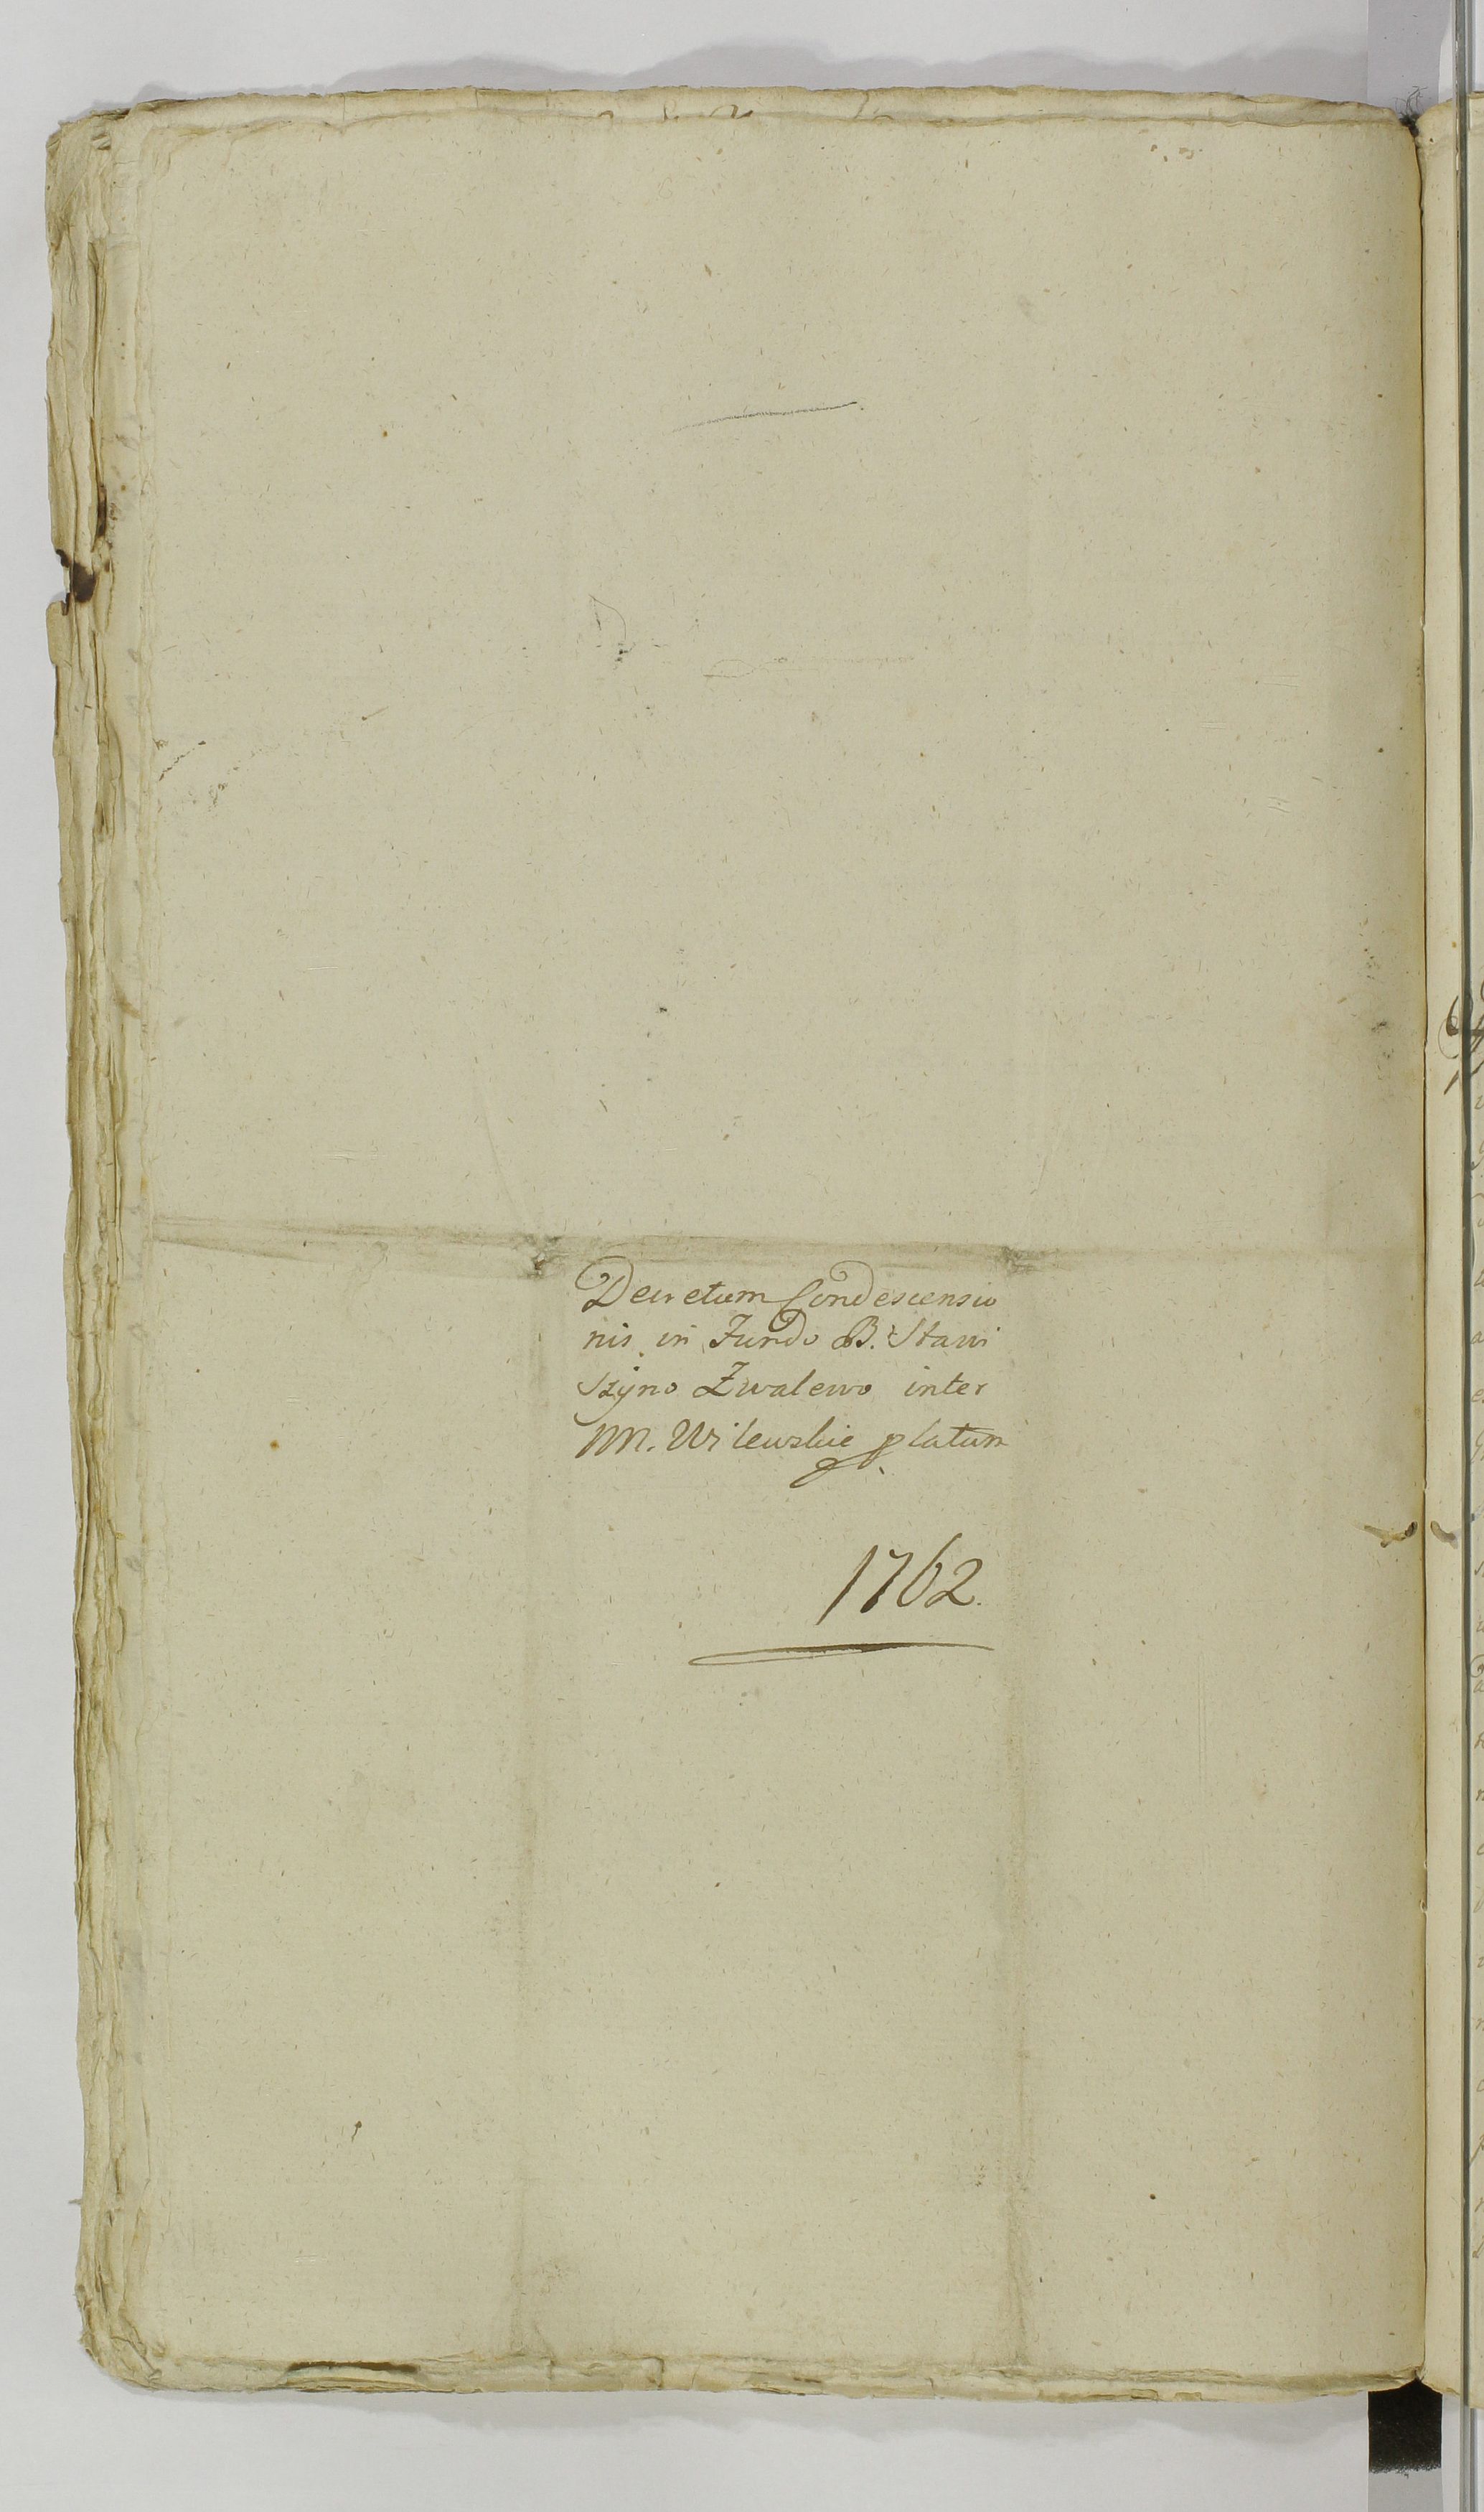 Decretum Condescensio
nis in Fundo B. Stawi
szyno Zwalewo inter
NN. Wilewskie platum
1762.